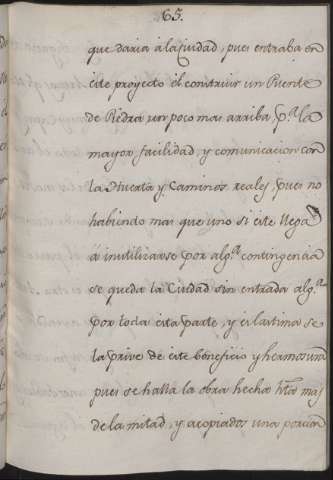 65.
que daria á la Ciudad, pues entraba en
este proyecto el construir un Puente
de Piedra un poco mas arriba, p.ª la
mayor facilidad, y comunicacion con
la Huerta y Caminos reales, pues no
habiendo mas que uno si este llega
á inutilizarse por alg.ª contingencia
se queda la Ciudad sin entrada alg.ª
por toda esta parte, y es lastima se
la prive de este beneficio y hermosura
pues se halla la obra hecha h.ta mas
de la mitad, y acopiados una porcion